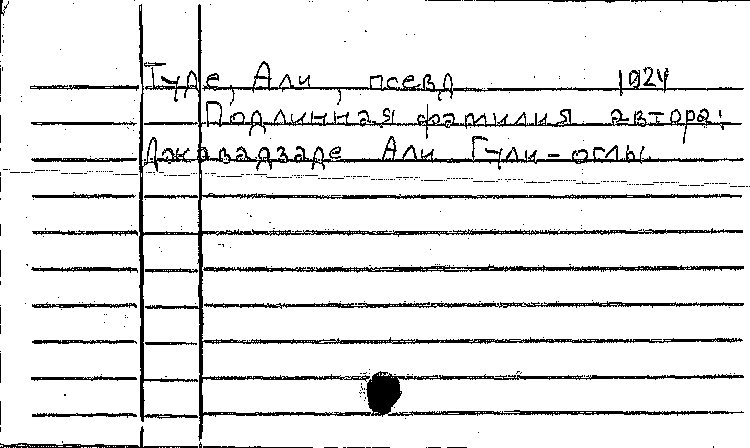 Туде, Али, псевд 1924
Подлинная фамилия автора:
Джавадзаде Али Гули-оглы.